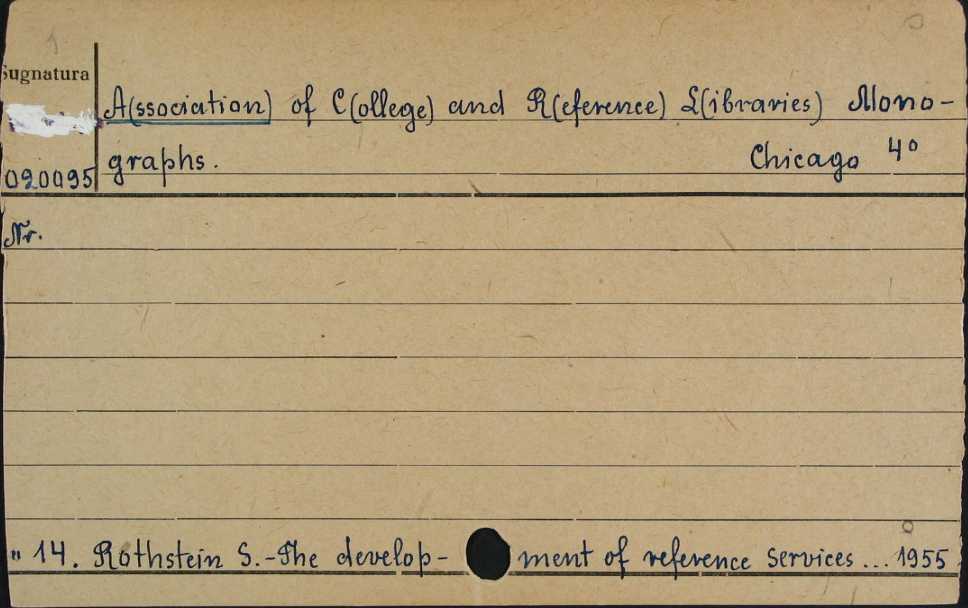 Sygnatura
A(ssociation) of C(ollege) and R(eference) L(ibraries) Mono-
graphs. Chicago 4°
020095
Nr.
" 14. Rothstein S.-The develop- ment of reference services ... 1955